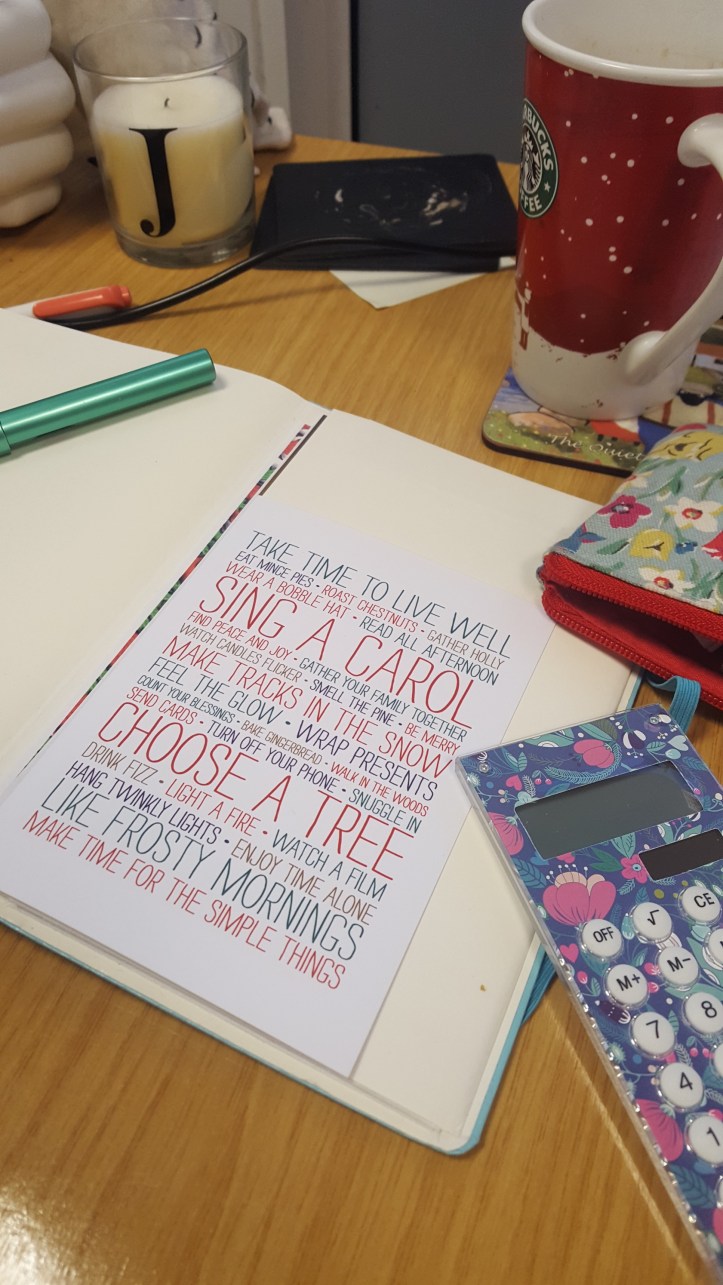 J
BUCKS
FEE
The Quiet
TAKE TIME TO LIVE WELL
EAT MINCE PIES - ROAST CHESTNUTS - GATHER HOLLY
WEAR A BOBBLE HAT - READ ALL AFTERNOON
SING A CAROL
FIND PEACE AND JOY - GATHER YOUR FAMILY TOGETHER
WATCH CANDLES FLICKER - SMELL THE PINE - BE MERRY
MAKE TRACKS IN THE SNOW
FEEL THE GLOW - WRAP PRESENTS
COUNT YOUR BLESSINGS - BAKE GINGERBREAD - WALK IN THE WOODS
SEND CARDS - TURN OFF YOUR PHONE - SNUGGLE IN
CHOOSE A TREE
DRINK FIZZ - LIGHT A FIRE - WATCH A FILM
HANG TWINKLY LIGHTS - ENJOY TIME ALONE
LIKE FROSTY MORNINGS
MAKE TIME FOR THE SIMPLE THINGS
OFF √ CE
M+ M-
7 8
4
1